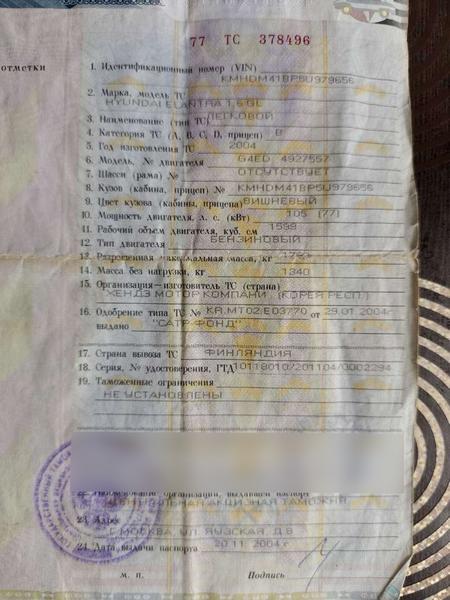 77 ТС 378496
отметки
1. Идентификационный номер (VIN)
KMHDM41BP5U979656
2. Марка, модель ТС
HYUNDAI ELANTRA 1,6 GL
3. Наименование (тип ТС) ЛЕГКОВОЙ
4. Категория ТС (А, В, С, D, прицеп) B
5. Год изготовления ТС 2004
6. Модель, № двигателя G4ED 4927557
7. Шасси (рама) № ОТСУТСТВУЕТ
8. Кузов (кабина, прицеп) № KMHDM41BP5U979656
9. Цвет кузова (кабины, прицепа) ВИШНЕВЫЙ
10. Мощность двигателя, л. с. (кВт) 105 (77)
11. Рабочий объем двигателя, куб. см 1599
12. Тип двигателя БЕНЗИНОВЫЙ
13. Разрешенная максимальная масса, кг
14. Масса без нагрузки, кг 1340
15. Организация—изготовитель ТС (страна)
ХЕНДЭ МОТОР КОМПАНИ (КОРЕЯ РЕСП.)
16. Одобрение типа ТС № KR.MT02.E03770 от 29.01.2004г
выдано "САТР-ФОНД"
17. Страна вывоза ТС ФИНЛЯНДИЯ
18. Серия, № удостоверения, ГТД 10118010/201104/0002294
19. Таможенные ограничения
НЕ УСТАНОВЛЕНЫ
22. Наименование организации, выдавшей паспорт
ЦЕНТРАЛЬНАЯ АКЦИЗНАЯ ТАМОЖНЯ
23. Адрес
Г.МОСКВА, УЛ. ЯУЗСКАЯ, Д.8
24. Дата выдачи паспорта 20.11.2004 г
М. П. Подпись